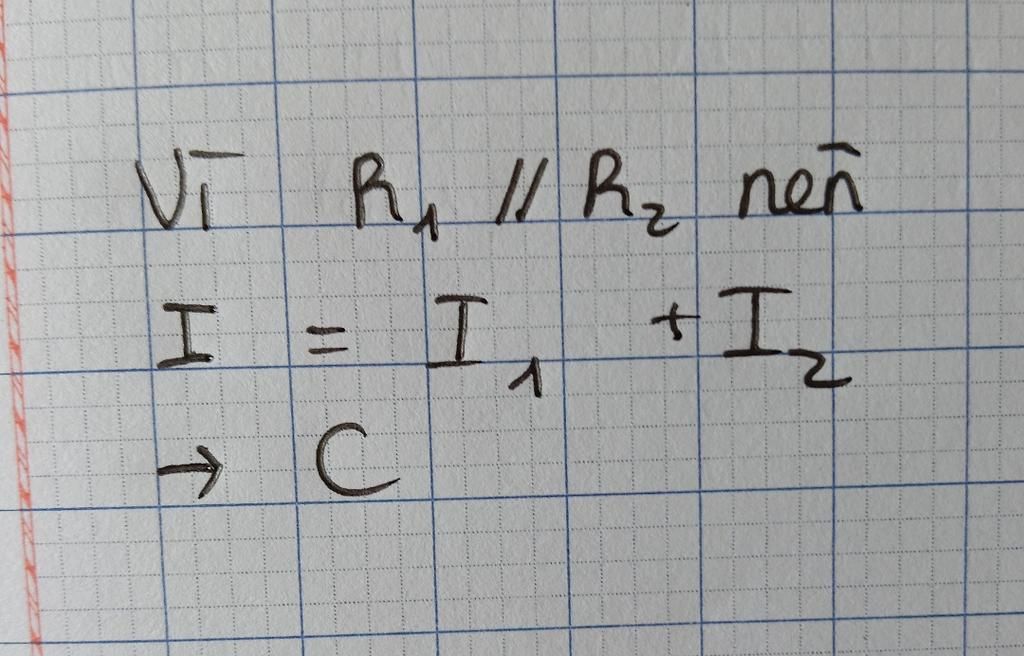 Vì R₁ // R₂ nên
I = I₁ + I₂
→ C